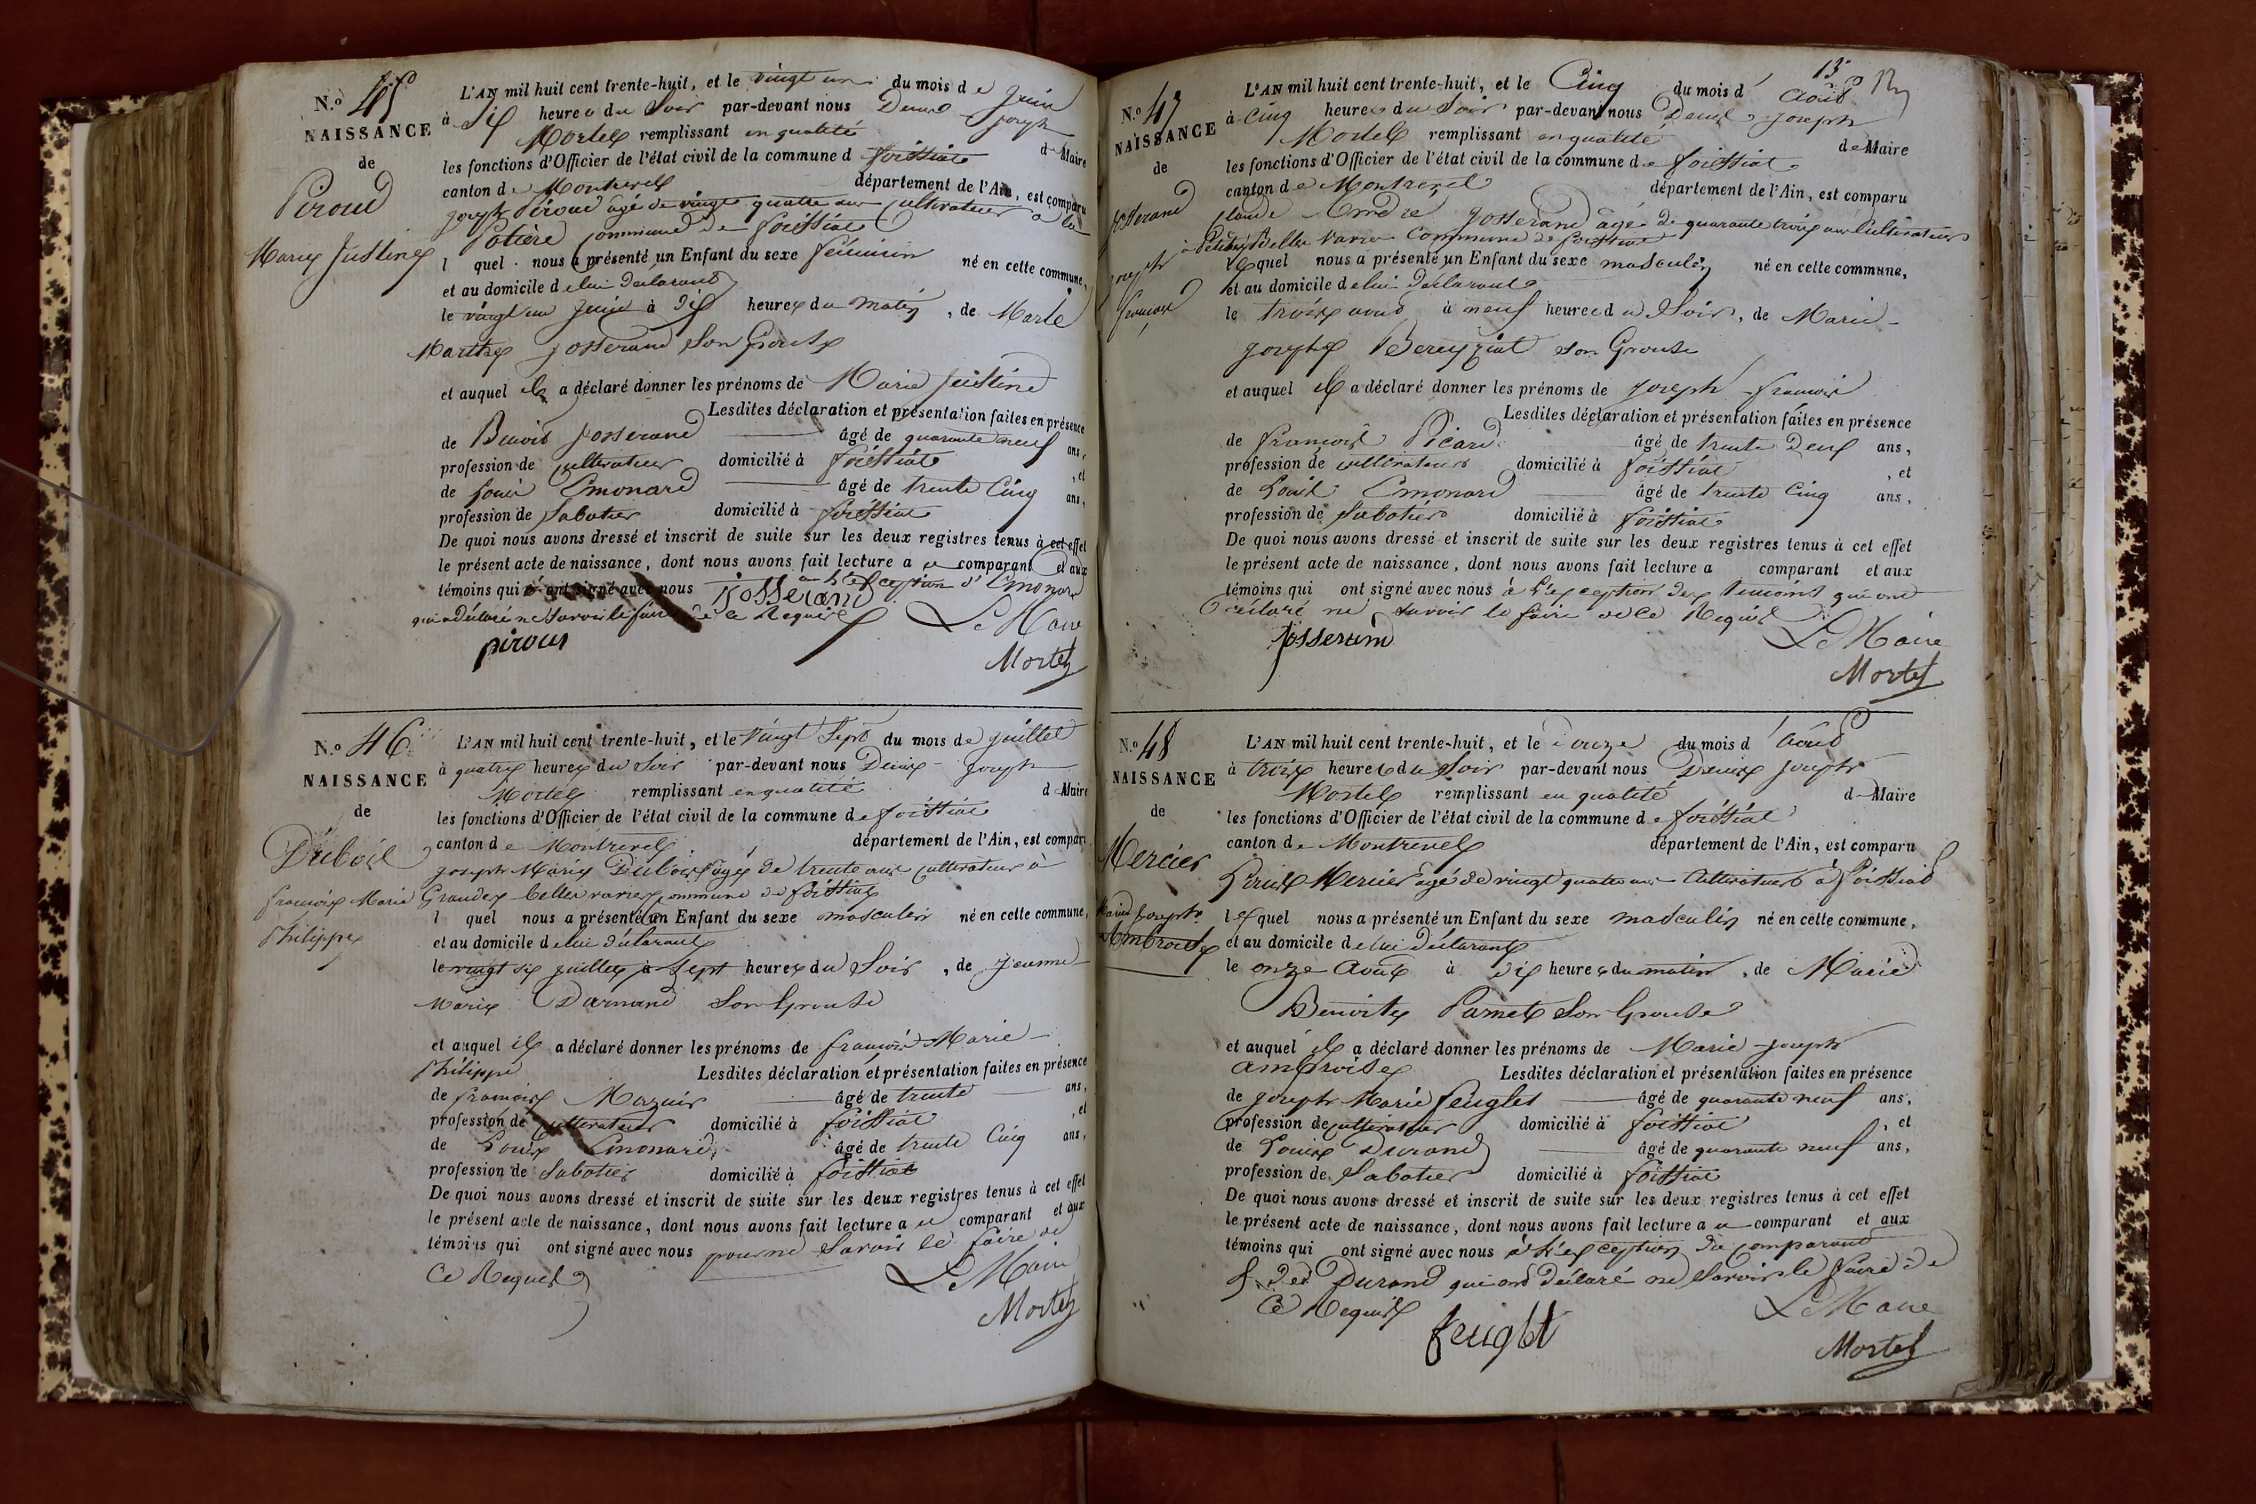 N.º 45
NAISSANCE
de
Piroud
Marie Justine
L'AN mil huit cent trente-huit, et le vingt un du mois de Juin
à Six heures du Soir par-devant nous Denis Joseph
Mortel remplissant en qualité de Maire
les fonctions d'Officier de l'état civil de la commune de foissiat
canton de Montrevel département de l'Ain, est comparu
joseph Piroud âgé de vingt quatre ans Cultivateur à la
Potière Commune de foissiat
l quel nous a présenté un Enfant du sexe féminin né en cette commune,
et au domicile de lui déclarant
le vingt un Juin à dix heures du matin, de Marie
Marthe josserand Son Epouse
et auquel il a déclaré donner les prénoms de Marie Justine
Lesdites déclaration et présentation faites en présence
de Benoid josserand âgé de quarante neuf ans,
profession de cultivateur domicilié à foissiat, et
de Louis Emonard âgé de trente Cinq ans,
profession de Sabotier domicilié à foissiat
De quoi nous avons dressé et inscrit de suite sur les deux registres tenus à cet effet
le présent acte de naissance, dont nous avons fait lecture au comparant et aux
témoins qui ont signé avec nous à l'exception d'Emonard
qui a déclaré ne Savoir le faire de ce Requis
josserand
Le Maire
piroud
Mortel
N.º 46
NAISSANCE
de
Dubois
françois Marie
Philippe
L'AN mil huit cent trente-huit, et le Vingt Sept du mois de juillet
à quatre heures du Soir par-devant nous Denis Joseph
Mortel remplissant en qualité de Maire
les fonctions d'Officier de l'état civil de la commune de foissiat
canton de Montrevel département de l'Ain, est comparu
joseph Marie Dubois âgé de trente ans cultivateur à
Grandes belles varies Commune de foissiat
l quel nous a présenté un Enfant du sexe masculin né en cette commune,
et au domicile de lui déclarant
le vingt six juillet à Sept heures du Soir, de Jeanne
Marie Darnand Son Epouse
et auquel il a déclaré donner les prénoms de françois Marie
Philippe Lesdites déclaration et présentation faites en présence
de françois Mazuir âgé de trente ans,
profession de cultivateur domicilié à foissiat, et
de Louis Emonard âgé de trente Cinq ans,
profession de Sabotier domicilié à foissiat
De quoi nous avons dressé et inscrit de suite sur les deux registres tenus à cet effet
le présent acte de naissance, dont nous avons fait lecture au comparant et aux
témoins qui ont signé avec nous pour ne Savoir le faire de
Ce Requis
Le Maire
Mortel
13
N.º 47
NAISSANCE
de
josserand
joseph
françois
L'AN mil huit cent trente-huit, et le Cinq du mois d'Août
à cinq heures du Soir par-devant nous Denis Joseph
Mortel remplissant en qualité de Maire
les fonctions d'Officier de l'état civil de la commune de foissiat
canton de Montrevel département de l'Ain, est comparu
Claude André josserand âgé de quarante trois ans Cultivateur
à Petites Belles Varies Commune de foissiat
lequel nous a présenté un Enfant du sexe masculin né en cette commune,
et au domicile de lui déclarant
le trois août à neuf heures du Soir, de Marie
josephe Bereyziat son Epouse
et auquel il a déclaré donner les prénoms de joseph françois
Lesdites déclaration et présentation faites en présence
de françois Picard âgé de trente Deux ans,
profession de cultivateur domicilié à foissiat, et
de Louis Emonard âgé de trente Cinq ans,
profession de Sabotier domicilié à foissiat
De quoi nous avons dressé et inscrit de suite sur les deux registres tenus à cet effet
le présent acte de naissance, dont nous avons fait lecture a comparant et aux
témoins qui ont signé avec nous à l'exception des temoins qui ont
déclaré ne savoir le faire de ce Requis
josserand
Le Maire
Mortel
N.º 48
NAISSANCE
de
Mercier
Marie Joseph
Ambroise
L'AN mil huit cent trente-huit, et le onze du mois d'Août
à trois heures du Soir par-devant nous Denis Joseph
Mortel remplissant en qualité de Maire
les fonctions d'Officier de l'état civil de la commune de foissiat
canton de Montrevel département de l'Ain, est comparu
Mercier âgé de vingt quatre ans Cultivateur à foissiat
lequel nous a présenté un Enfant du sexe masculin né en cette commune,
et au domicile de lui déclarant
le onze Août à dix heures du matin, de Marie
Benoite Parnet Son Epouse
et auquel il a déclaré donner les prénoms de Marie Joseph
ambroise Lesdites déclaration et présentation faites en présence
de joseph Marie feuglet âgé de quarante neuf ans,
profession de cultivateur domicilié à foissiat, et
de Louis Durand âgé de quarante neuf ans,
profession de Sabotier domicilié à foissiat
De quoi nous avons dressé et inscrit de suite sur les deux registres tenus à cet effet
le présent acte de naissance, dont nous avons fait lecture au comparant et aux
témoins qui ont signé avec nous à l'exception du comparant
Durand qui ont déclaré ne Savoir le faire de
Ce Requis
Le Maire
feuglet
Mortel